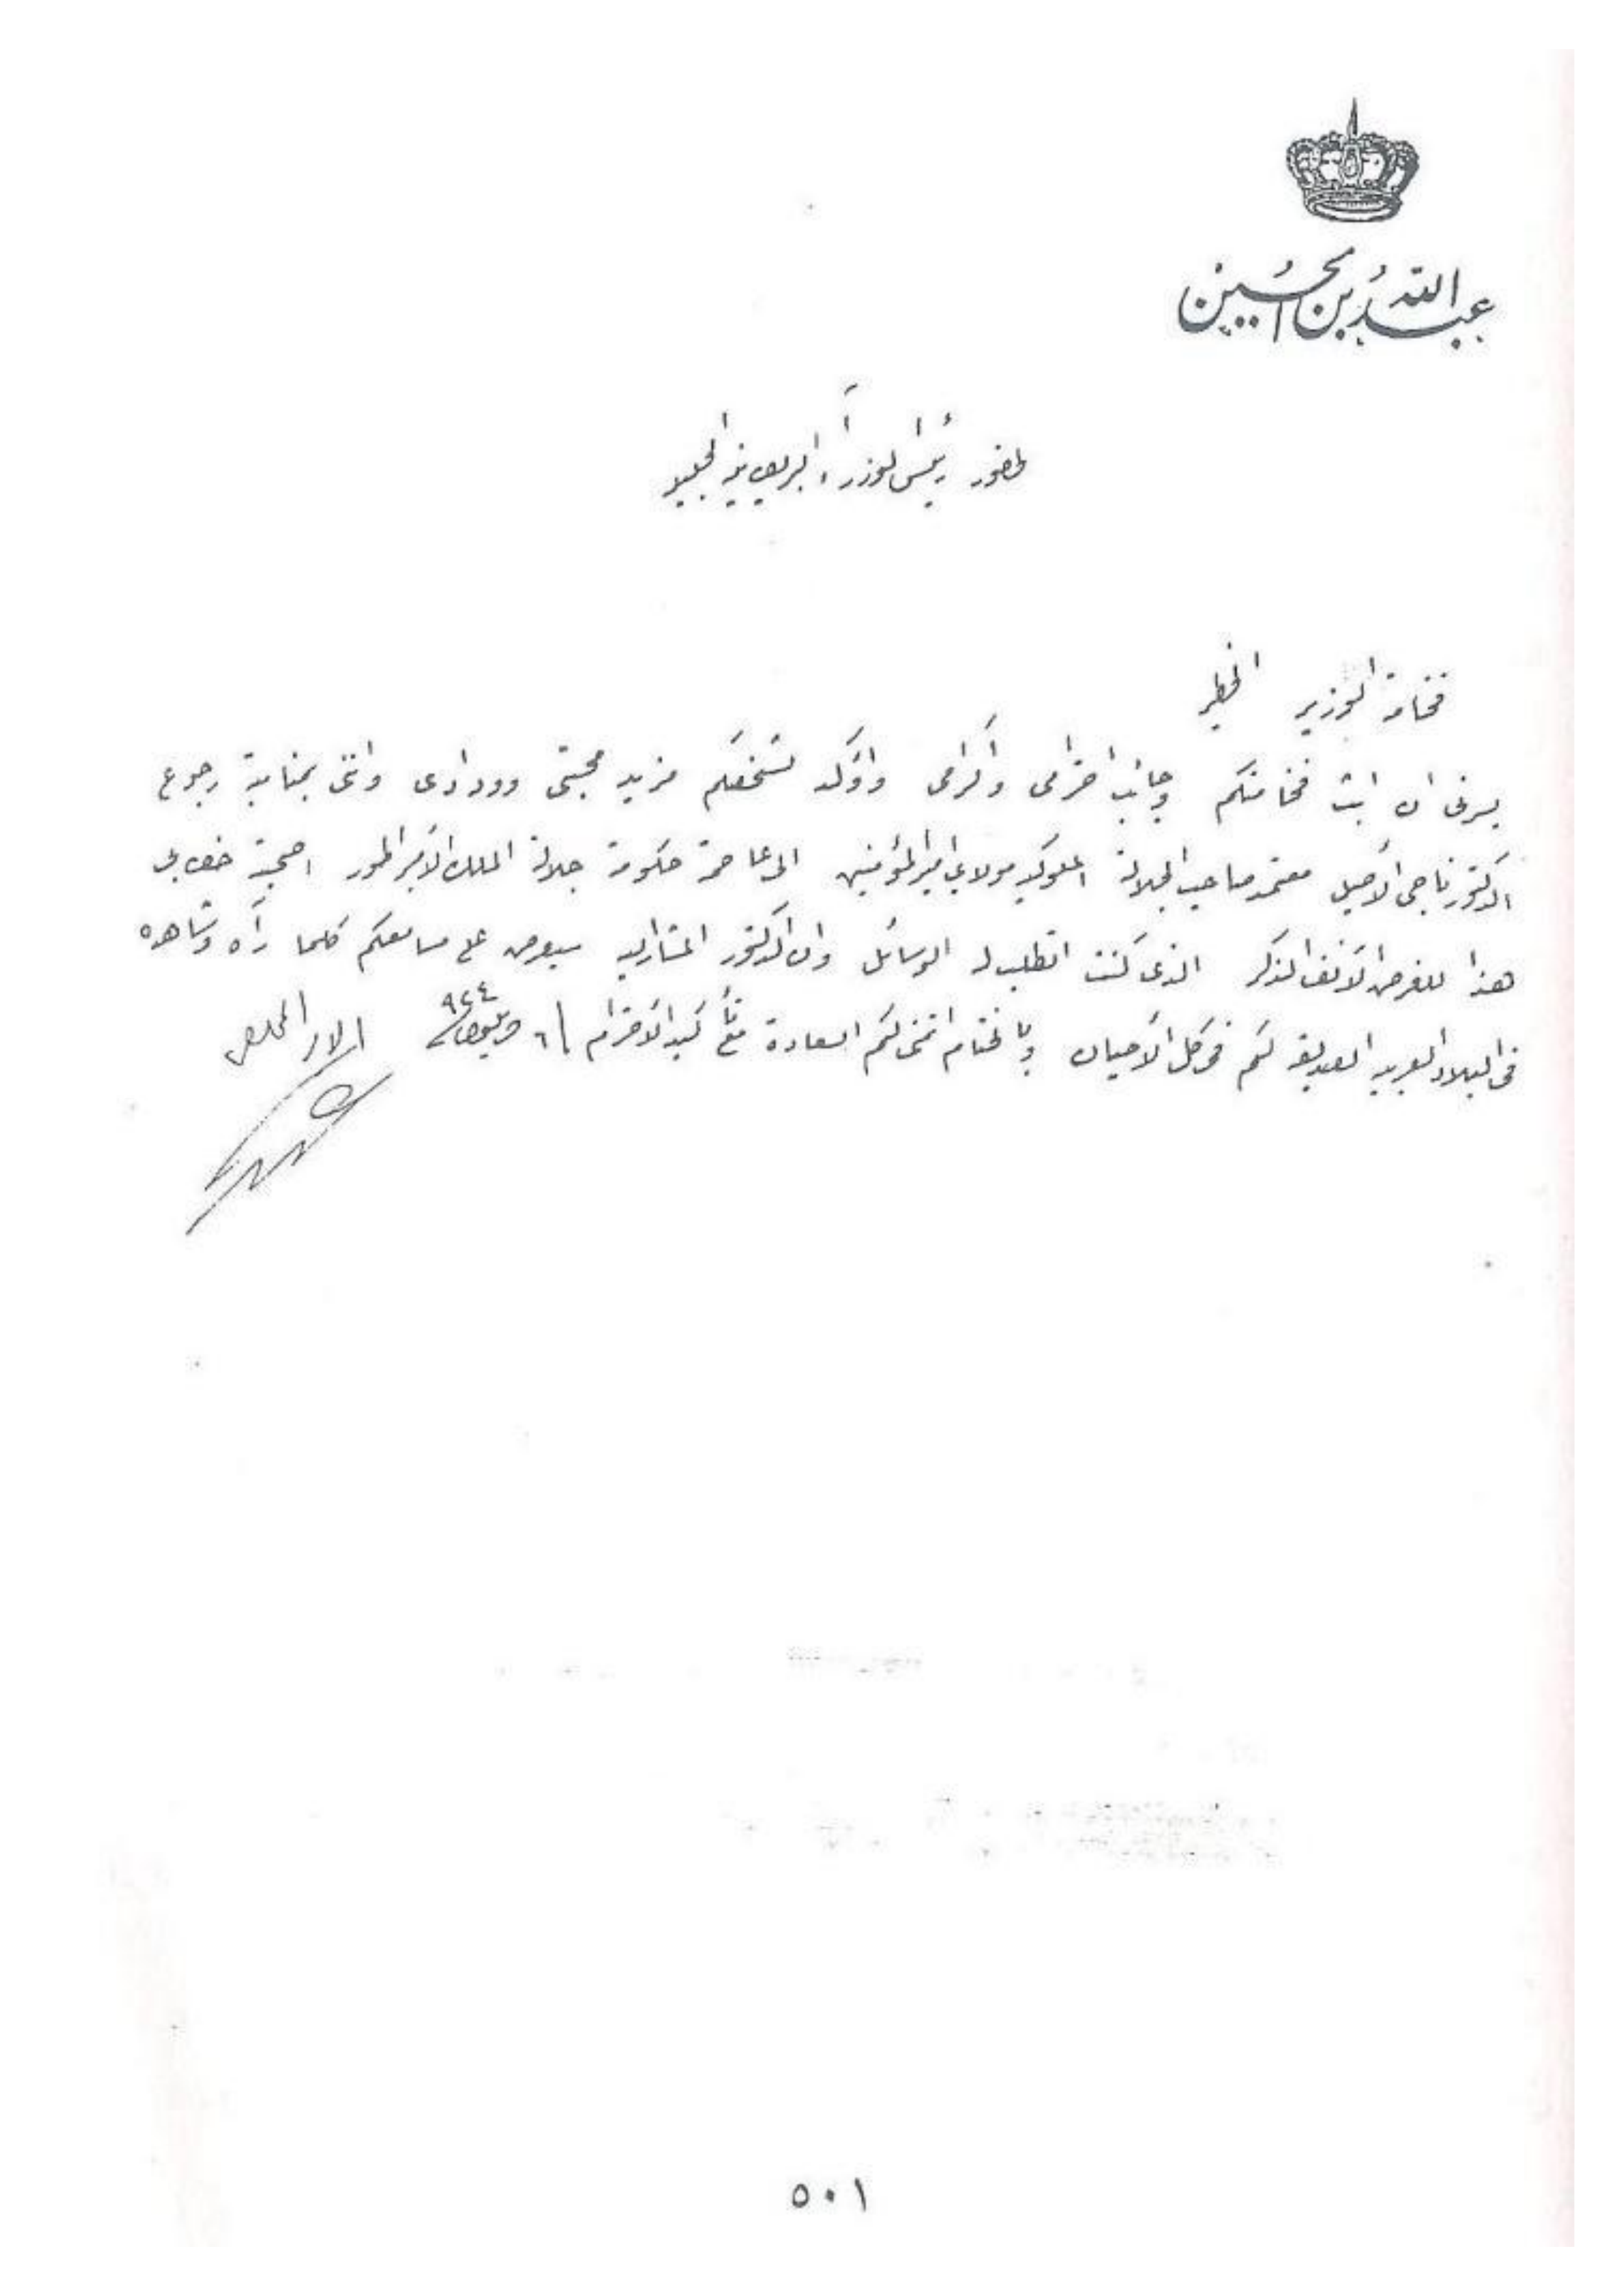 عبد الله بن الحسين
لحضور رئيس الوزرآء البريطانية الجليلة
فخامة الوزير الخطير
يسرنى ان ابث فخامتكم وجائب احترامى واكرامى واؤكد لشخصكم مزيد محبتى وودادى واننى بمناسبة رجوع
الدكتور ناجى الأصيل معتمد صاحب الجلالة الملوكية مولاي امير المؤمنين الى عاصمة حكومة جلالة الملك الأمبراطور اصحبته خطابى
هذا للغرض الآنف الذكر الذى كنت اتطلب له الوسائل وان الدكتور المشار اليه سيعرض على مسامعكم كلما رآه وشاهده
فى البلاد العربية الصديقة لكم فى كل الأحيان وبالختام اتمنى لكم السعادة مع تأكيد الأحترام ٦ ٩٢٤ المخلص
٥٠١